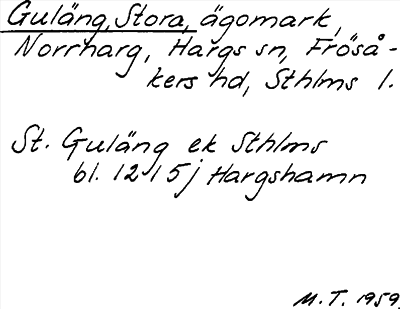 Guläng, Stora, ägomark,
Norrharg, Hargs sn, Fröså-
kers hd, Sthlms l.
St. Guläng ek Sthlms
bl. 12 I 5j Hargshamn
M.T. 1959.